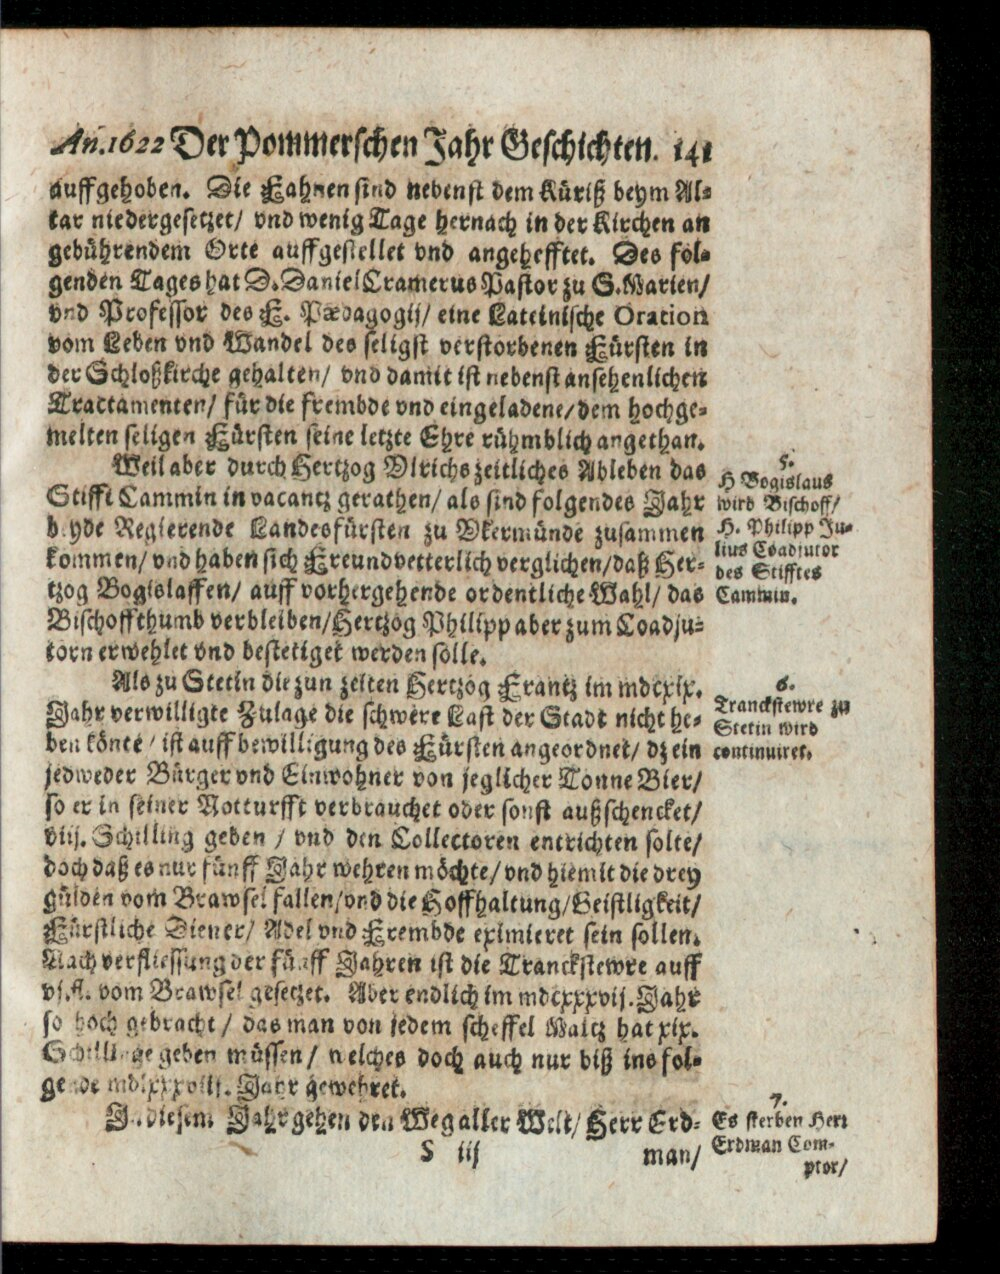 An. 1622 Der Pommerschen Jahr Geschichten. 141
auffgehoben. Die Fahnen sind nebenst dem Küriß beym Al-
tar niedergesetzet/ vnd wenig Tage hernach in der Kirchen an
gebührendem Orte auffgestellet vnd angehefftet. Des fol-
genden Tages hat D. Daniel Cramerus Pastor zu S. Marien/
vnd Professor des F. Pædagogij/ eine Lateinische Oration
vom Leben vnd Wandel des seligst verstorbenen Fürsten in
der Schloßkirche gehalten/ vnd damit ist nebenst ansehenlichen
Tractamenten/ für die frembde vnd eingeladene/ dem hochge-
melten seligen Fürsten seine letzte Ehre rühmblich angethan.
Weil aber durch Hertzog Vlrichs zeitliches Ableben das
Stifft Cammin in vacantz gerathen/ als sind folgendes Jahr
beyde Regierende Landesfürsten zu Vkermünde zusammen
kommen/ vnd haben sich Freundvetterlich verglichen/ daß Her-
tzog Bogislaffen/ auff vorhergehende ordentliche Wahl/ das
Bischoffthumb verbleiben/ Hertzog Philipp aber zum Coadju-
torn erwehlet vnd bestetiget werden solle.
5.
H Bogislaus
wird Bischoff/
H. Philipp Ju-
lius Coadjutor
des Stifftes
Cammin.
Als zu Stetin die zun zeiten Hertzog Frantz im mdcxix.
Jahr verwilligte Zulage die schwere Last der Stadt nicht he-
ben könte/ ist auff bewilligung des Fürsten angeordnet/ dz ein
jedweder Bürger vnd Einwohner von jeglicher Tonne Bier/
so er in seiner Notturfft verbrauchet oder sonst außschencket/
viij. Schilling geben/ vnd den Collectoren entrichten solte/
doch daß es nur fünff Jahr wehren möchte/ vnd hiemit die drey
gülden vom Brawsel fallen/ vnd die Hoffhaltung/ Geistligkeit/
Fürstliche Diener/ Adel vnd Frembde eximieret sein sollen.
Nach verfliessung der fünff Jahren ist die Tranckstewre auff
vj. fl. vom Brawsel gesetzet. Aber endlich im mdcxxxvij. Jahr
so hoch gebracht/ das man von jedem scheffel Maltz hat xix.
Schillinge geben müssen/ welches doch auch nur biß ins fol-
gende Jahr gewehret.
6.
Tranckstewre zu
Stetin wird
continuiret.
In diesem Jahr gehen den Weg aller Welt/ Herr Erd-
7.
Es sterben Herr
Erdman Com-
ptor/
S iij
man/